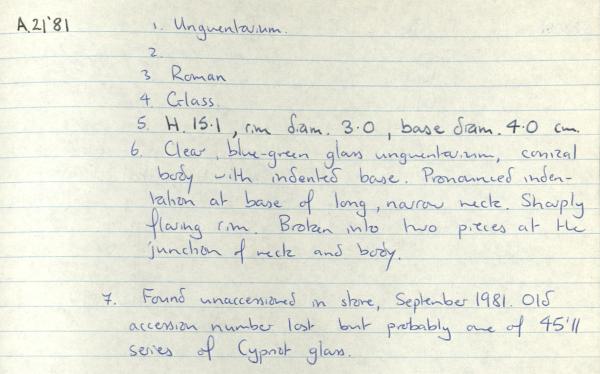 A.21'81
1. Unguentarium.
2.
3 Roman
4. Glass.
5. H. 15.1, rim diam. 3.0, base diam. 4.0 cm.
6. Clear, blue-green glass unguentarium, conical
body with indented base. Pronounced inden-
tation at base of long, narrow neck. Sharply
flaring rim. Broken into two pieces at the
junction of neck and body.
7. Found unaccessioned in store, September 1981. Old
accession number lost but probably one of 45'11
series of Cypriot glass.